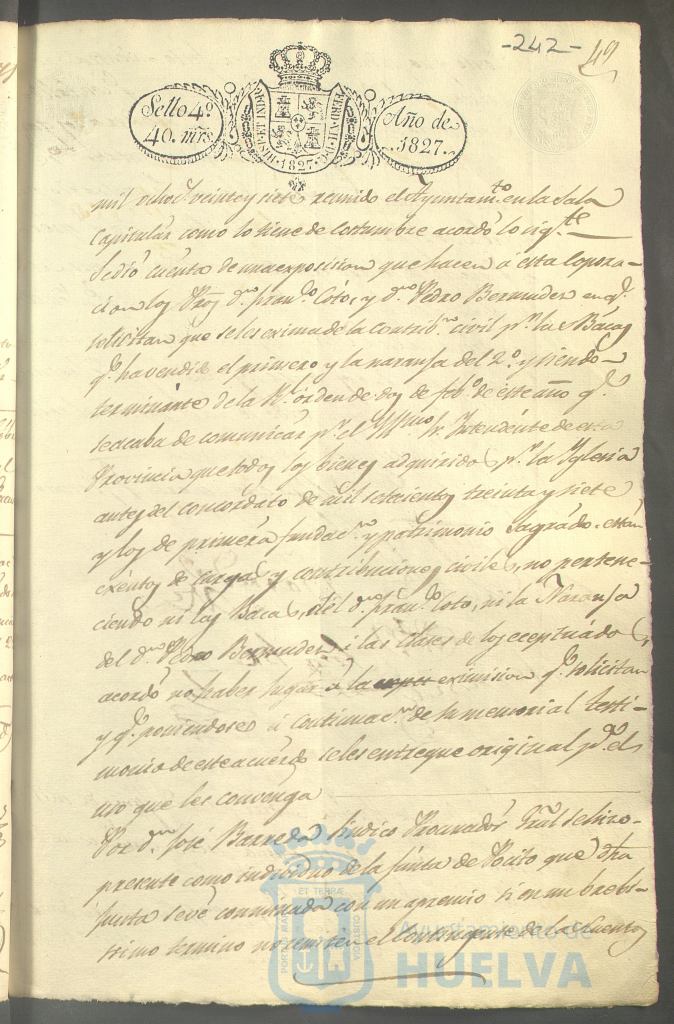 -242- 49
Sello 4º
40. mrs.
HISP. ET IND. R.
FERD. VII. D. G.
1827
Año de
1827.
mil ochocs. veinte y siete reunido el Ayuntamto. en la Sala
Capitular como lo tiene de costumbre acordó lo sigte.
Se dió cuenta de una exposicion que hacen á esta Copora-
cion los Pros. dn. Franco. Coto, y dn. Pedro Bermudez en q.
solicitan que se les exima de la contribn. civil pr. las Bacas
q. ha vendido el primero y la naranja del 2º. y siendo
terminante de la Rl. orden de dos de febo. de este año q.
se acaba de comunicar pr. el Illmo. Sr. Intendente de esta
Provincia que todos los bienes adquiridos pr. la Iglesia
antes del concordato de mil setecientos treinta y siete
y los de primera fundacn. y patrimonio sagrado. estan
exentos de cargas y contribuciones civiles, no pertene-
ciendo ni las Bacas, del dn. Franco. Coto, ni la Naranja
del dn. Pedro Bermudez á las clases de los eceptuados,
acordó no haber lugar á la eximision q. solicitan
y q. poniendose á continuacn. de su memorial testi-
monio de este acuerdo se les entregue original pa. el
uso que les convenga
Por dn. José Barreda Sindico Procurador Gral se hizo
presente como individuo de la Junta de Pósito que dha
Junta se vé conminada con un apremio si en un brebi-
simo termino no remiten el Contingente de las Cuentas
PORTUS MARIS
ET TERRÆ
CUSTODIA
Ayuntamiento de
HUELVA